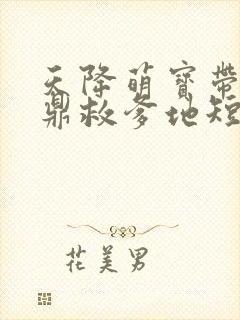 天降萌寶帶
鼎救爹地短
花美男